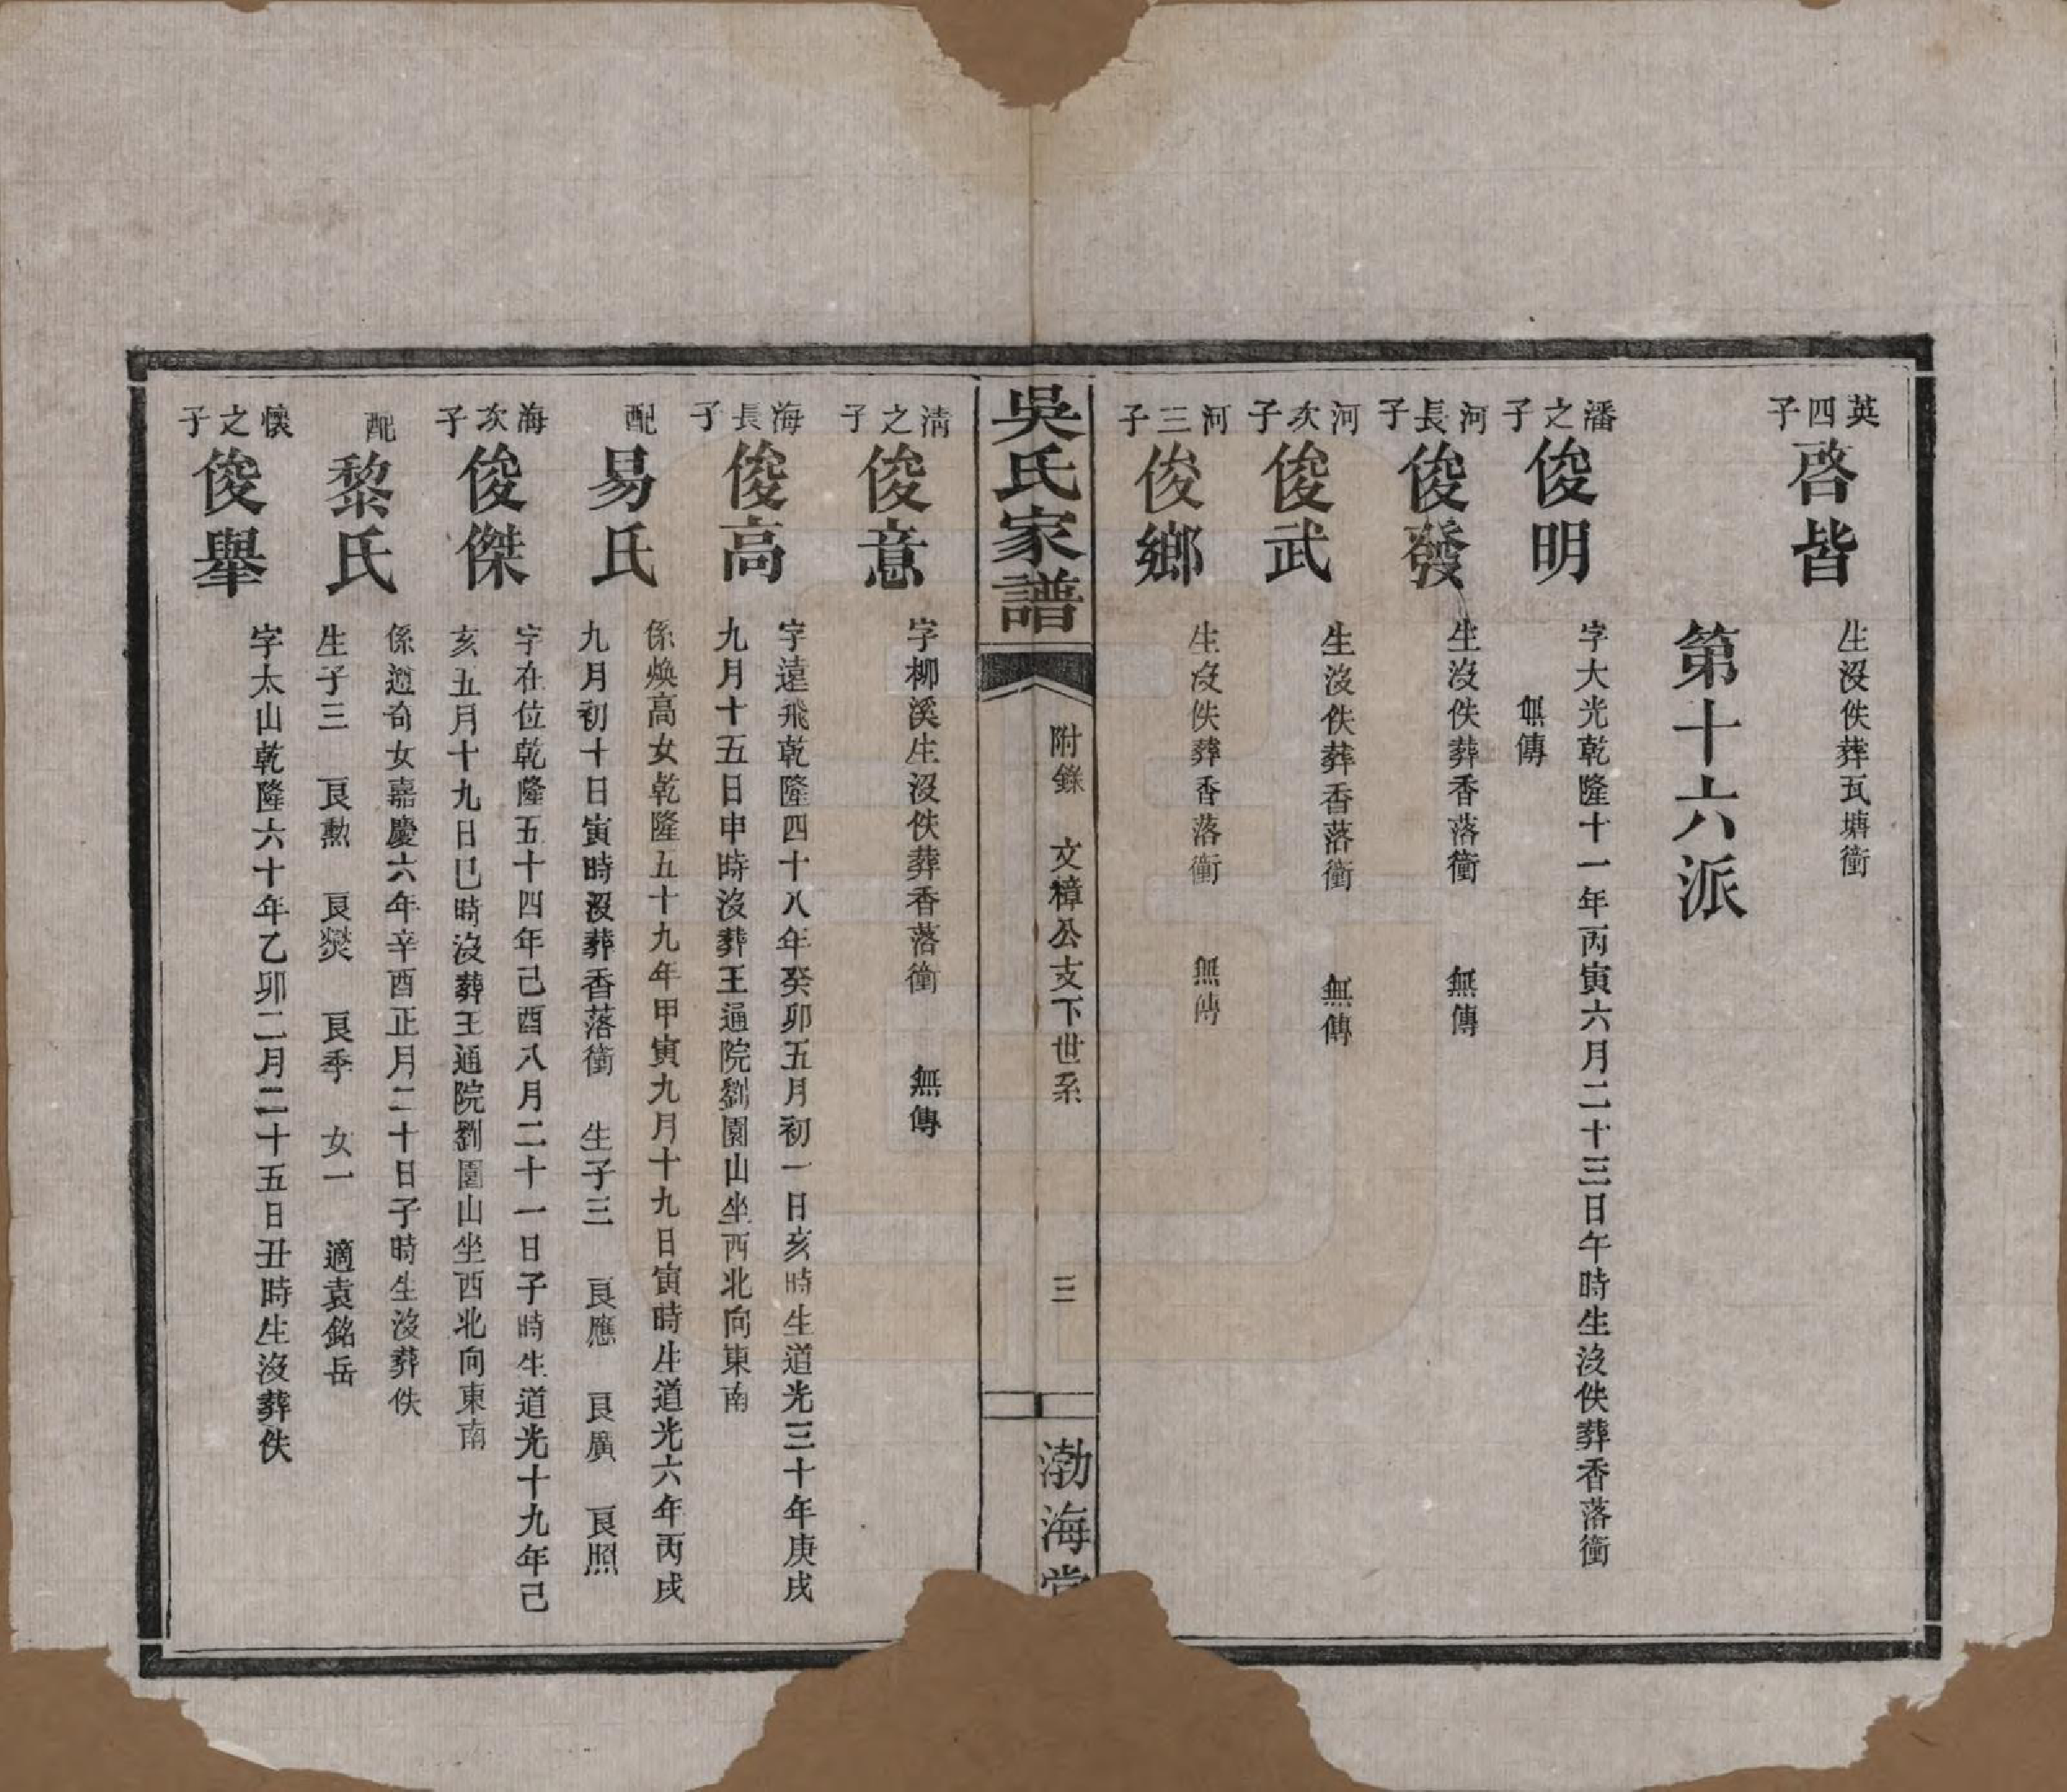 英四子
啓皆
生沒佚葬瓦塘衝
第十六派
潘之子
俊明
字大光乾隆十一年丙寅六月二十三日午時生沒佚葬香落衝
無傳
河長子
俊發
生沒佚葬香落衝 無傳
河次子
俊武
生沒佚葬香落衝 無傳
河三子
俊鄉
生沒佚葬香落衝 無傳
吳氏家譜
附錄 文樟公支下世系
三
渤海堂
淸之子
俊意
字柳溪生沒佚葬香落衝 無傳
海長子
俊高
字遠飛乾隆四十八年癸卯五月初一日亥時生道光三十年庚戌
九月十五日申時沒葬王通院劉園山坐西北向東南
配
易氏
係煥高女乾隆五十九年甲寅九月十九日寅時生道光六年丙戌
九月初十日寅時沒葬香落衝 生子三 良應 良廣 良照
海次子
俊傑
字在位乾隆五十四年己酉八月二十一日子時生道光十九年己
亥五月十九日巳時沒葬王通院劉園山坐西北向東南
配
黎氏
係遊奇女嘉慶六年辛酉正月二十日子時生沒葬佚
生子三 良勲 良燚 良季 女一 適袁銘岳
懷之子
俊舉
字太山乾隆六十年乙卯二月二十五日丑時生沒葬佚